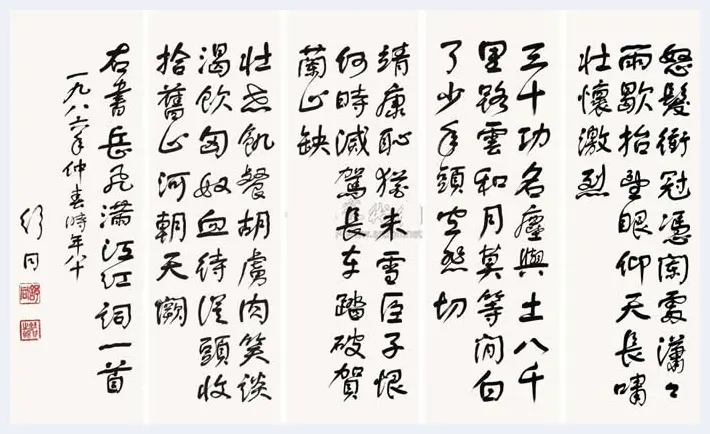 怒髮衝冠憑闌處瀟々
雨歇抬望眼仰天長嘯
壯懷激烈
三十功名塵與土八千
里路雲和月莫等閒白
了少年頭空悲切
靖康恥猶未雪臣子恨
何時滅駕長車踏破賀
蘭山缺
壯志飢餐胡虜肉笑談
渴飲匈奴血待從頭收
拾舊山河朝天闕
右書岳飛滿江紅詞一首
一九八六年仲春時年八十
舒同
舒同